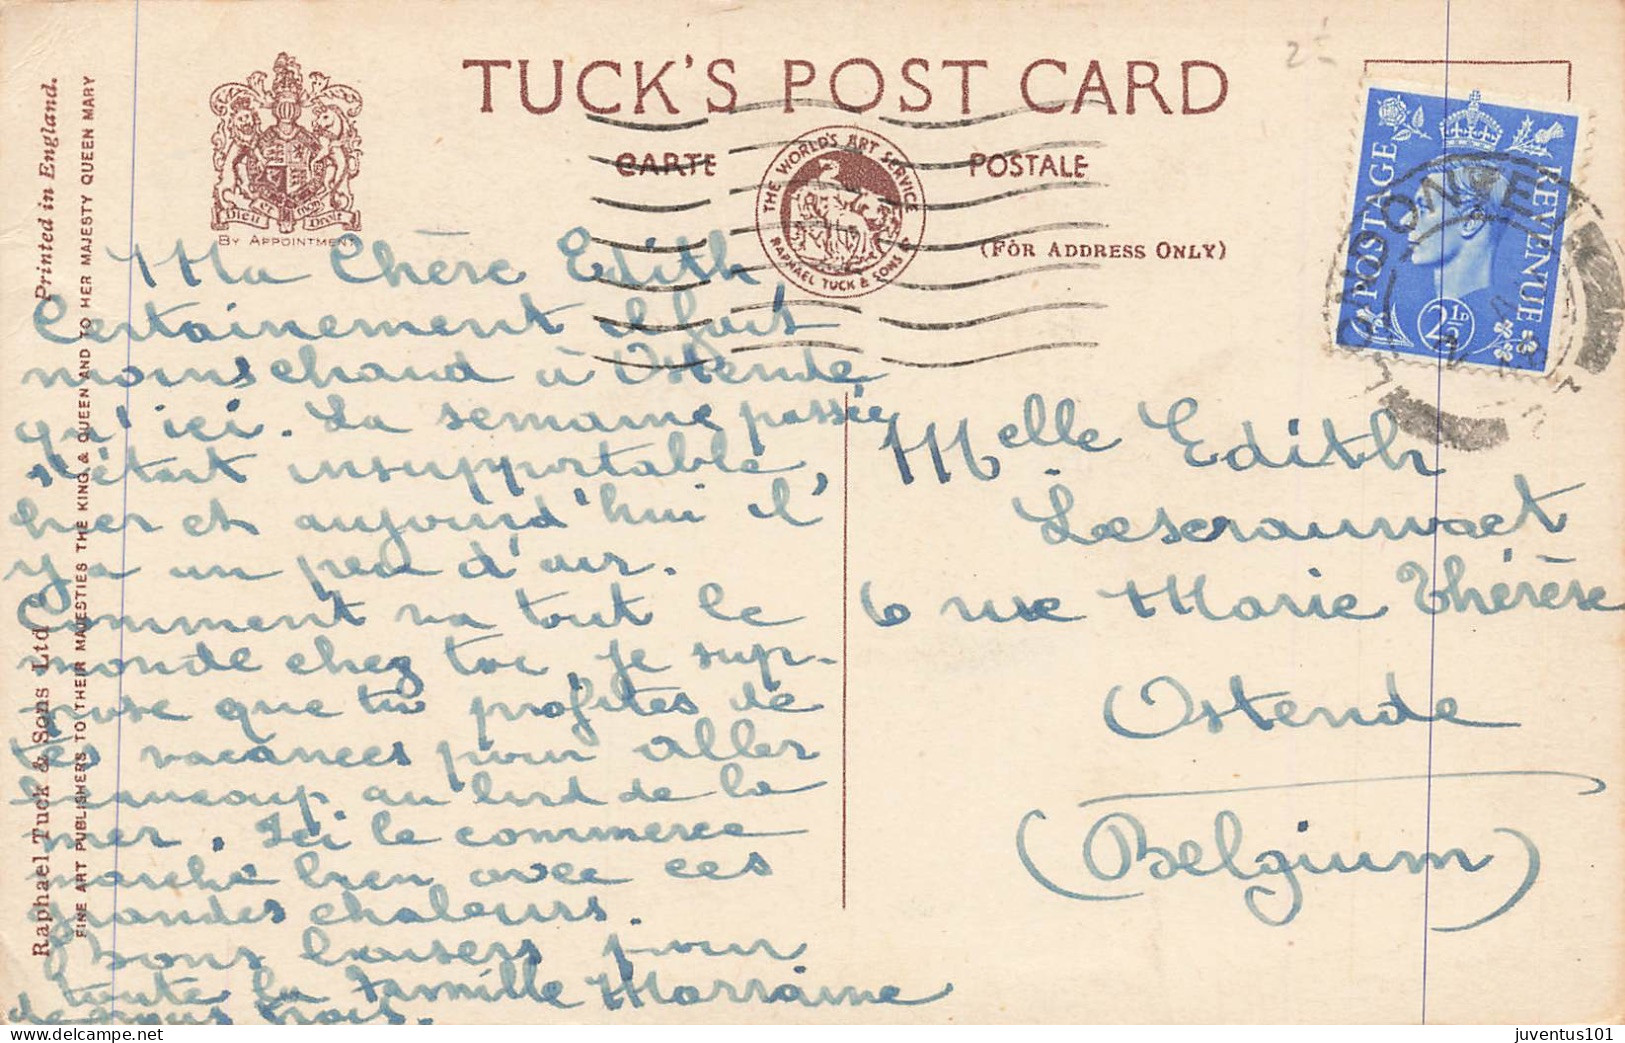 TUCK'S POST CARD
CARTE POSTALE
(FOR ADDRESS ONLY)
THE WORLD'S ART SERVICE
RAPHAEL TUCK & SONS LD
Dieu et mon Droit
BY APPOINTMENT
Printed in England.
Raphael Tuck & Sons Ltd
FINE ART PUBLISHERS TO THEIR MAJESTIES THE KING & QUEEN AND TO HER MAJESTY QUEEN MARY
POSTAGE
REVENUE
2½D
LONDON
Ma Chère Edith,
Certainement il fait
moins chaud à Ostende
qu'ici. La semaine passée
c'était insupportable,
hier et aujourd'hui il
y a un peu d'air.
Comment va tout le
monde chez toi, je sup-
pose que tu profites de
tes vacances pour aller
beaucoup au bord de la
mer. Ici le commerce
marche bien avec ces
grandes chaleurs.
Bons baisers pour
toute la famille Marraine
de nous trois.
Melle Edith
Lescrauwaet
6 rue Marie Thérèse
Ostende
(Belgium)
juventus101